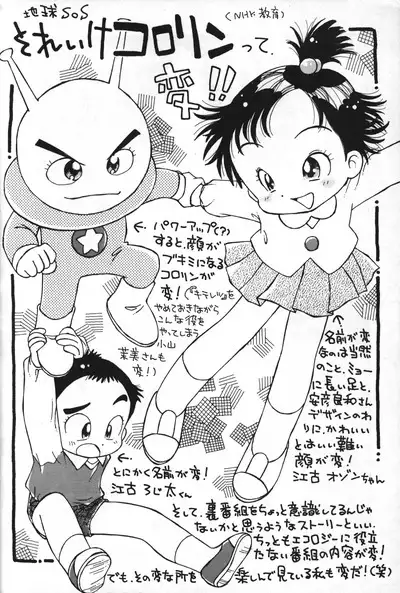 地球SOS
それいけコロリンって、
(NHK教育)
変!!
←パワーアップ(?)
すると、顔が
ブキミになる
コロリンが
変!(『キテレツ』を
やめておきながら
こんな役を
やってしまう
小山
茉美さんも
変!)
↑名前が変
なのは当然
のこと、ミョー
に長い足と、
安彦良和さん
デザインのわ
りに、かわいい
とはいい難い
顔が変!
江古 オゾンちゃん
←
とにかく名前が変!
江古 ろじ太くん
そして、裏番組をちょっと意識してるんじゃ
ないかと思うようなストーリーといい、
ちっともエコロジーに役立
たない番組の内容が変!
でも、その変な所を 楽しんで見ている私も変だ!(笑)